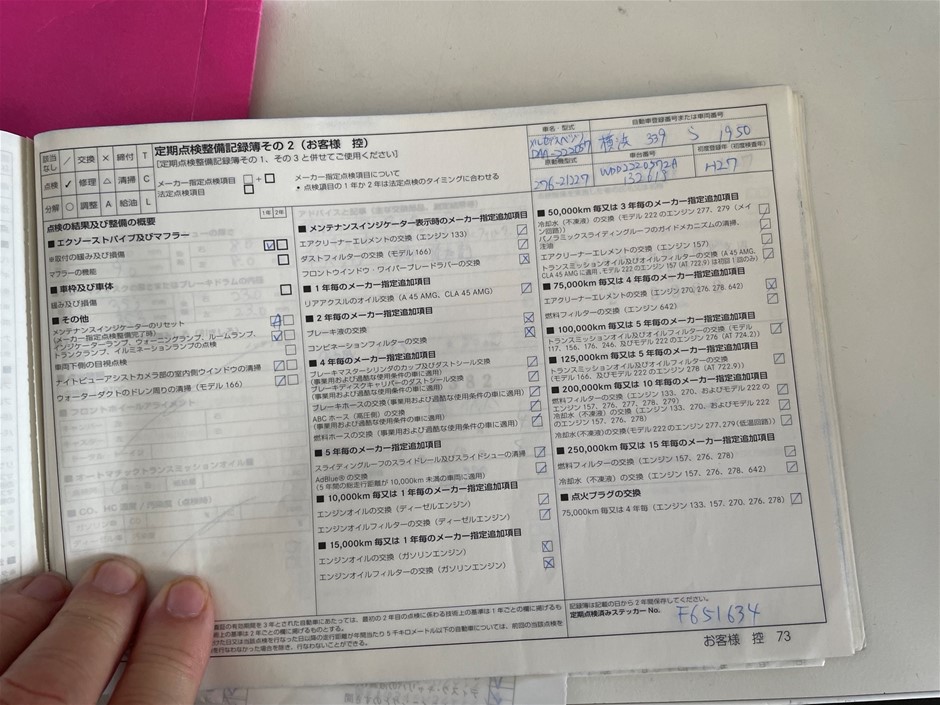 該当なし ／ 交換 × 締付 T
点検 ✓ 修理 △ 清掃 C
分解 ○ 調整 A 給油 L
定期点検整備記録簿その2（お客様　控）
[定期点検整備記録簿その1、その3と併せてご使用ください]
メーカー指定点検項目 □+□
法定点検項目 □
メーカー指定点検項目について
• 点検項目の1年か2年は法定点検のタイミングに合わせる
車名・型式
自動車登録番号または車両番号
横浜 339 S 1950
原動機型式
276-21227
車台番号
初度登録年（初度検査年）
H27
点検の結果及び整備の概要
1年 2年
■ エクゾーストパイプ及びマフラー
※取付の緩み及び損傷
マフラーの機能
■ 車枠及び車体
緩み及び損傷
■ その他
メンテナンスインジケーターのリセット
(メーカー指定点検整備完了時)
インジケーターランプ、ウォーニングランプ、ルームランプ、
トランクランプ、イルミネーションランプの点検
車両下側の目視点検
ナイトビューアシストカメラ部の室内側ウインドウの清掃
ウォーターダクトのドレン周りの清掃（モデル166）
■ メンテナンスインジケーター表示時のメーカー指定追加項目
エアクリーナーエレメントの交換（エンジン133）
ダストフィルターの交換（モデル166）
フロントウインドウ・ワイパーブレードラバーの交換
■ 1年毎のメーカー指定追加項目
リアアクスルのオイル交換（A 45 AMG、CLA 45 AMG）
■ 2年毎のメーカー指定追加項目
ブレーキ液の交換
コンビネーションフィルターの交換
■ 4年毎のメーカー指定追加項目
ブレーキマスターシリンダのカップ及びダストシール交換
(事業用および過酷な使用条件の車に適用)
ブレーキディスクキャリパーのダストシール交換
(事業用および過酷な使用条件の車に適用)
ブレーキホースの交換(事業用および過酷な使用条件の車に適用)
ABC ホース（高圧側）の交換
(事業用および過酷な使用条件の車に適用)
燃料ホースの交換（事業用および過酷な使用条件の車に適用）
■ 5年毎のメーカー指定追加項目
スライディングルーフのスライドレール及びスライドシューの清掃
AdBlue®の交換
(5年間の総走行距離が10,000km 未満の車両に適用)
■ 10,000km 毎又は1年毎のメーカー指定追加項目
エンジンオイルの交換（ディーゼルエンジン）
エンジンオイルフィルターの交換（ディーゼルエンジン）
■ 15,000km 毎又は1年毎のメーカー指定追加項目
エンジンオイルの交換（ガソリンエンジン）
エンジンオイルフィルターの交換（ガソリンエンジン）
■ 50,000km 毎又は3年毎のメーカー指定追加項目
冷却水（不凍液）の交換（モデル222のエンジン277、279（メイン回路））
パノラミックスライディングルーフのガイドメカニズムの清掃、注油
エアクリーナーエレメントの交換（エンジン157）
トランスミッションオイル及びオイルフィルターの交換（A 45 AMG、
CLA 45 AMGに適用、モデル222のエンジン157（AT 722.9）は初回1回のみ）
■ 75,000km 毎又は4年毎のメーカー指定追加項目
エアクリーナーエレメントの交換（エンジン270、276、278、642）
燃料フィルターの交換（エンジン642）
■ 100,000km 毎又は5年毎のメーカー指定追加項目
トランスミッションオイル及びオイルフィルターの交換（モデル
117、156、176、246、モデル222のエンジン276（AT 724.2））
■ 125,000km 毎又は5年毎のメーカー指定追加項目
トランスミッションオイル及びオイルフィルターの交換
（モデル166、及びモデル222のエンジン278（AT 722.9））
■ 200,000km 毎又は10年毎のメーカー指定追加項目
燃料フィルターの交換（エンジン133、270、およびモデル222の
エンジン157、276、277、278、279）
冷却水（不凍液）の交換（エンジン133、270、およびモデル222
のエンジン157、276、278）
冷却水(不凍液)の交換(モデル222のエンジン277、279(低温回路))
■ 250,000km 毎又は15年毎のメーカー指定追加項目
燃料フィルターの交換（エンジン157、276、278）
冷却水（不凍液）の交換（エンジン157、276、278、642）
■ 点火プラグの交換
75,000km 毎又は4年毎（エンジン133、157、270、276、278）
査証の有効期間を3年とされた自動車にあたっては、最初の2年目の点検に係わる技術上の基準は1年ごとの欄に掲げるも
術上の基準は2年ごとの欄に掲げるものとする。
けた日又は当該点検を行なった日以降の走行距離が年間当たり5千キロメートル以下の自動車については、前回の当該点検を
を行なわなかった場合を除き、行なわないことができる。
記録簿は記載の日から2年間保存してください。
定期点検済みステッカーNo. F651634
お客様　控　73